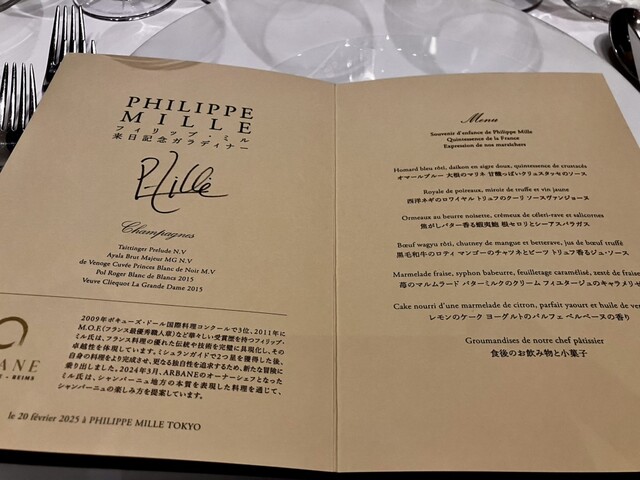 PHILIPPE
MILLE
フィリップ・ミル
来日記念ガラディナー
P-Mille
Champagnes
Taittinger Prelude N.V
Ayala Brut Majeur MG N.V
de Venoge Cuvée Princes Blanc de Noir M.V
Pol Roger Blanc de Blancs 2015
Veuve Clicquot La Grande Dame 2015
2009年ボキューズ・ドール国際料理コンクールで3位、2011年に
M.O.F.(フランス最優秀職人章)など華々しい受賞歴を持つフィリップ・
ミル氏は、フランス料理の優れた伝統や技術を完璧に具現化し、その
卓越性を体現しています。ミシュランガイドで2つ星を獲得した後、
自身の料理をより完成させ、更なる独自性を追求するため、新たな冒険に
乗り出しました。2024年3月、ARBANEのオーナーシェフとなった
ミル氏は、シャンパーニュ地方の本質を表現した料理を通じて、
シャンパーニュの楽しみ方を提案しています。
BANE
REIMS
le 20 février 2025 à PHILIPPE MILLE TOKYO
Menu
Souvenir d'enfance de Philippe Mille
Quintessence de la France
Expression de nos maraîchers
Homard bleu rôti, daïkon en aigre doux, quintessence de crustacés
オマールブルー 大根のマリネ 甘酸っぱいクリュスタッセのソース
Royale de poireaux, miroir de truffe et vin jaune
西洋ネギのロワイヤル トリュフのクーリ ソースヴァンジョーヌ
Ormeaux au beurre noisette, crémeux de céleri-rave et salicornes
焦がしバター香る蝦夷鮑 根セロリとシーアスパラガス
Bœuf wagyu rôti, chutney de mangue et betterave, jus de bœuf truffé
黒毛和牛のロティ マンゴーのチャツネとビーツ トリュフ香るジュ・ソース
Marmelade fraise, syphon babeurre, feuilletage caramélisé, zeste de fraise
苺のマルムラード バターミルクのクリーム フィユタージュのキャラメリゼ
Cake nourri d'une marmelade de citron, parfait yaourt et huile de ver
レモンのケーク ヨーグルトのパルフェ ベルベーヌの香り
Groumandises de notre chef pâtissier
食後のお飲み物と小菓子